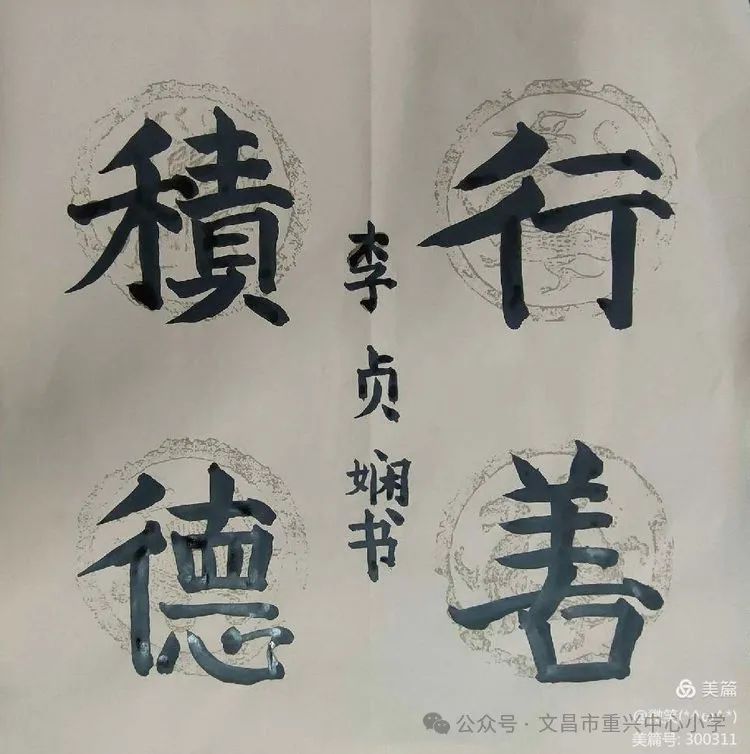 行善
積德
李贞娴书
美篇
@微笑(*^ω^*)
公众号·文昌市重兴中心小学
美篇号: 300311